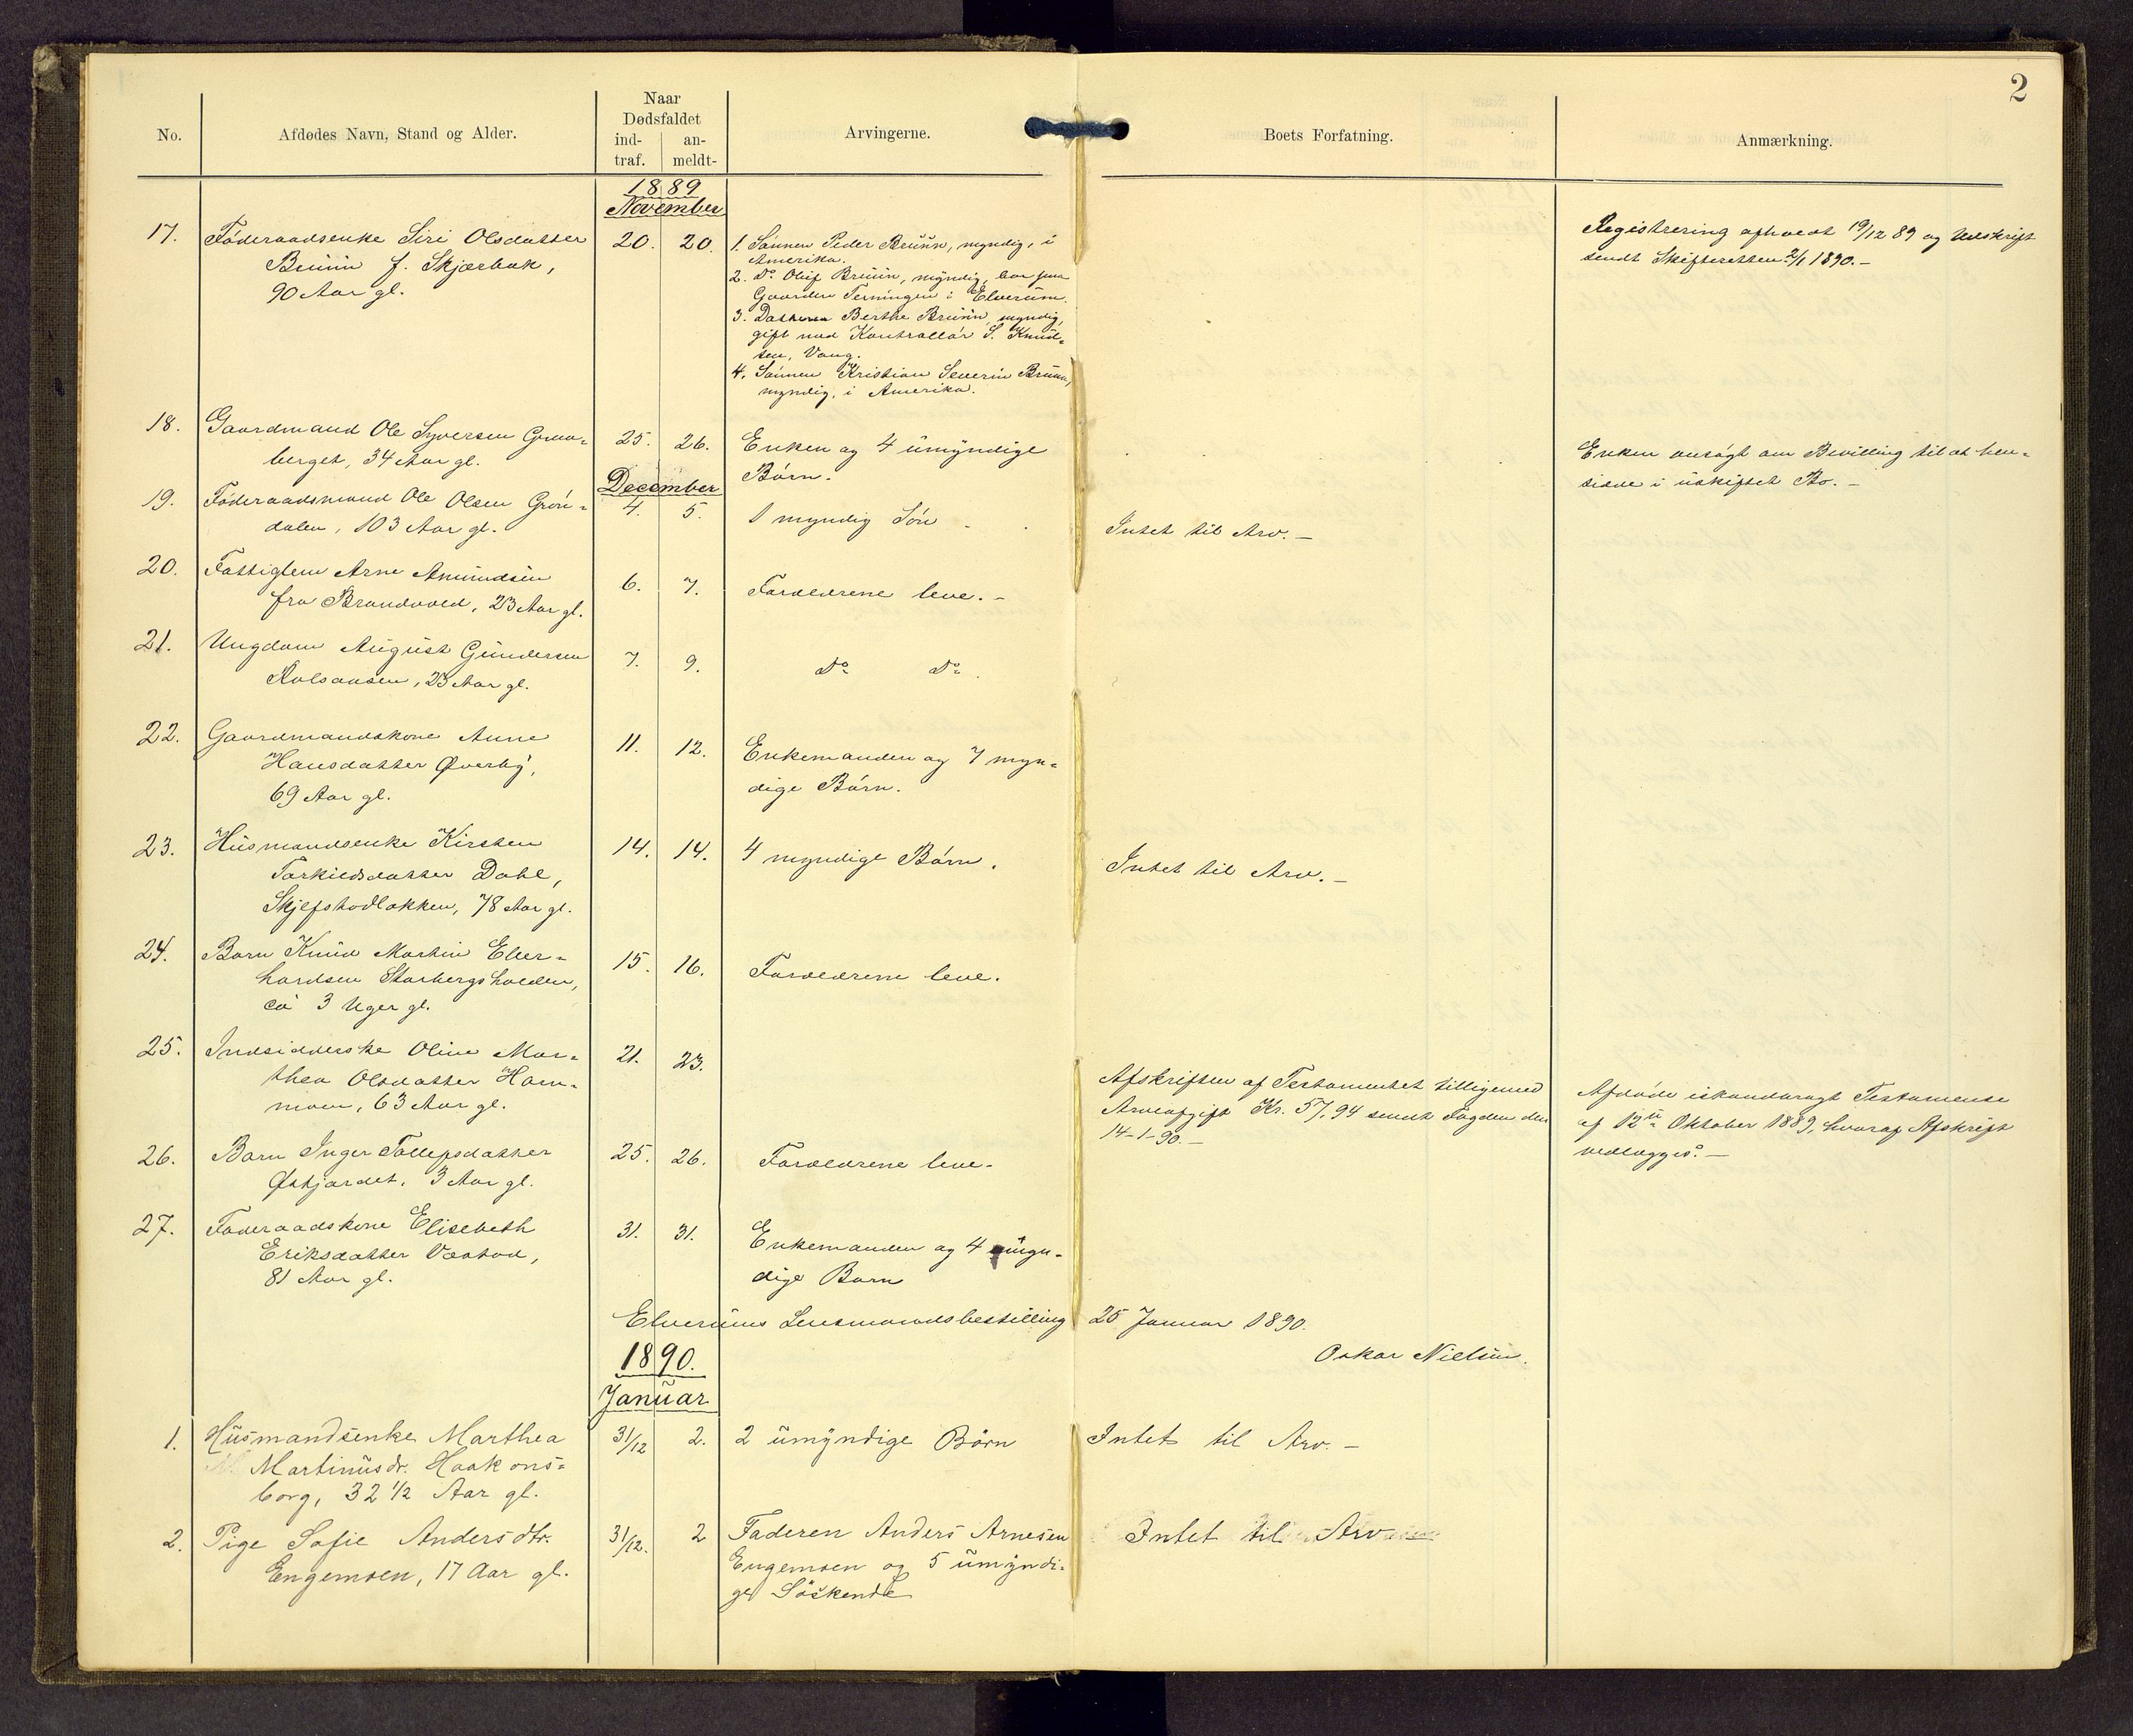 2
No.
Afdødes Navn, Stand og Alder.
Naar
Dødsfaldet
ind-
traf.
an-
meldt-
Arvingerne.
Boets Forfatning.
Anmærkning.
1889
November
17. Föderaadsenke Siri Olsdatter 20. 20. 1. Sönnen Peder Bruun, myndig, i Registrering afholdt 19/12 89 og Udskrift
Bruun f. Skjærbæk, Amerika. sendt Skifteretten 2/1 1890.-
90 Aar gl. 2. Do Oluf Bruun, myndig, bor paa
Gaarden Terningen i Elverum.
3. Datteren Berthe Bruun, myndig,
gift med Kontrollör S. Knud-
sen, Vang.
4. Sönnen Kristian Severin Bruun,
myndig, i Amerika.
18. Gaardmand Ole Syversen Grøn-
berget, 34 Aar gl. 25. 26. Enken og 4 umyndige Enken ansögt om Bevilling til at hen-
Börn. sidde i uskiftet Bo. -
December
19. Föderaadsmand Ole Olsen Grön- 4. 5. 1 myndig Sön
dalen, 103 Aar gl. Intet til Arv. -
20. Fattiglem Arne Amundsen 6. 7. Forældrene leve. -
fra Brandvold, 23 Aar gl.
21. Ungdom August Gundersen 7. 9. Do Do
23 Aar gl.
22. Gaardmandskone Anne 11. 12. Enkemanden og 7 myn-
Hansdatter Øverby, dige Börn.
69 Aar gl.
23. Husmandsenke Kirsten 14. 14. 4 myndige Börn. Intet til Arv. -
Torkildsdatter Dahl,
Skjefstadløkken, 78 Aar gl.
24. Barn Knud Martin Eber- 15. 16. Forældrene leve.
hardsen Storbergsholen,
ca 3 Uger gl.
25. Indsidderske Oline Mar- 21. 23.
thea Olsdatter Ham- Afskriften af Testamentet tilligemed Afdöde Testamente
moen, 63 Aar gl. Arveafgift Kr. 57.94 sendt Fogden den af 12te Oktober 1889, hvoraf Afskrift
14-1-90. - vedlægges. -
26. Barn Inger Tollefsdatter 25. 26. Forældrene leve.
Østjordet, 3 Aar gl.
27. Foderaadskone Elisebeth 31. 31. Enkemanden og 4 myn-
Eriksdatter Vestad, dige Barn
81 Aar gl.
Elverums Lensmandsbestilling 25 Januar 1890.
Oskar Nielsen.
1890.
Januar
1. Husmandsenke Marthea 31/12 2. 2 umyndige Börn Intet til Arv. -
Martinusdr. Haakons-
borg, 32 1/2 Aar gl.
2. Pige Sofie Andersdtr. 31/12. 2 Faderen Anders Arnesen Intet til Arv
Engemoen, 17 Aar gl. Engemoen og 5 umyndi-
ge Söskende